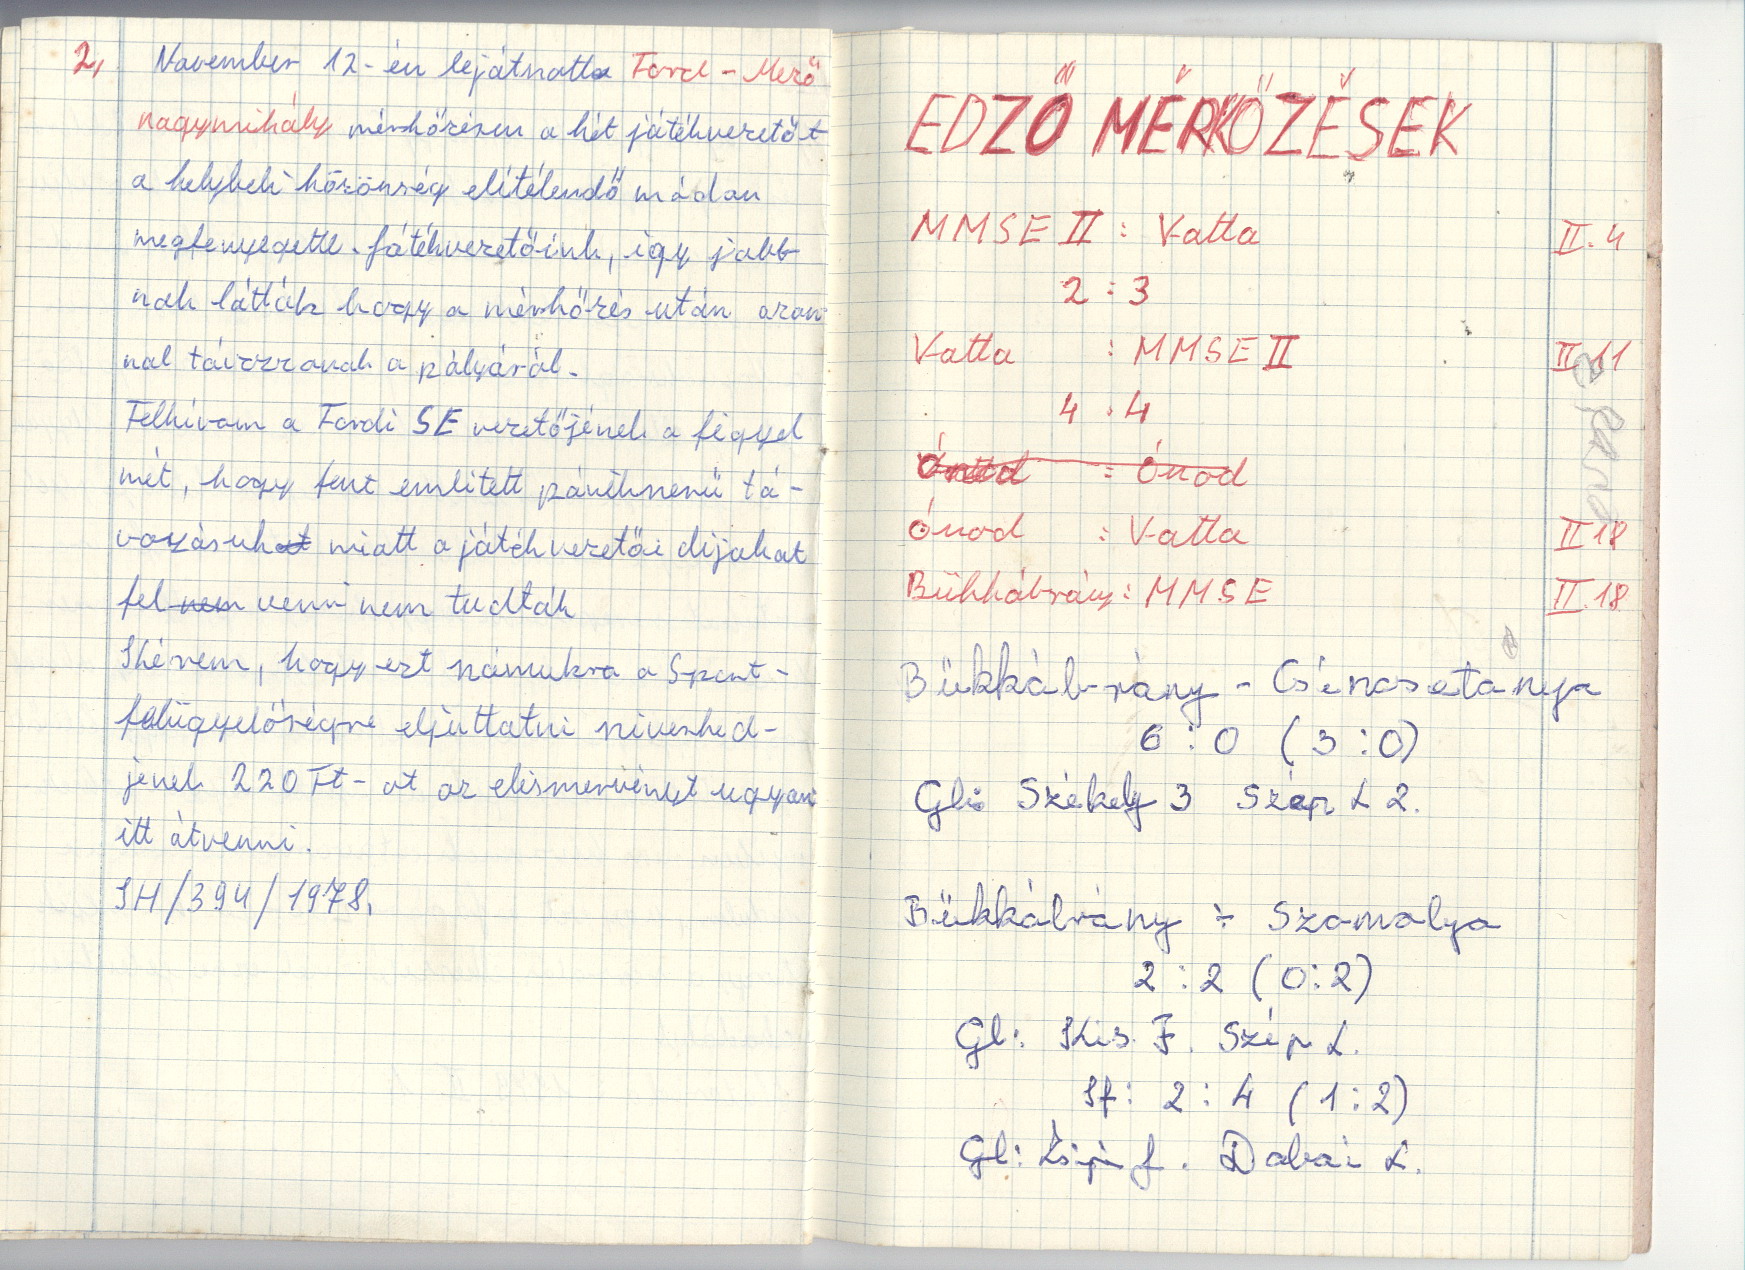 2, November 12-én lejátszott Tard - Mező
nagymihály mérkőzésen a két játékvezetőt
a helybeli közönség elítélendő módon
megfenyegette. Játékvezetőink, így jobb
nak látták hogy a mérkőzés után azon
nal távozzanak a pályáról.
Felhívom a Tardi SE vezetőjének a figyel
mét, hogy fent említett pánikszerű tá-
vozásuk miatt a játékvezetői díjakat
fel venni nem tudták
Kérem, hogy ezt számukra a Sport-
felügyelőségre eljuttatni sziveskedjen
jenek 220 Ft-ot az elismervényt ugyan
itt átvenni.
SH/394/1978.
EDZŐ MÉRKŐZÉSEK
MMSE II : Vatta II. 4
2 : 3
Vatta : MMSE II II. 11
4 : 4
: Ónod
Ónod : Vatta II 18
Bükkábrány : MMSE II. 18
Bükkábrány - Csincsetanya
6 : 0 (3 : 0)
Gl: Székely 3 Szép L 2.
Bükkábrány ÷ Szomolya
2 : 2 (0:2)
Gl: Kis F. Szép L.
If: 2 : 4 (1:2)
Gl: f. Dobai L.